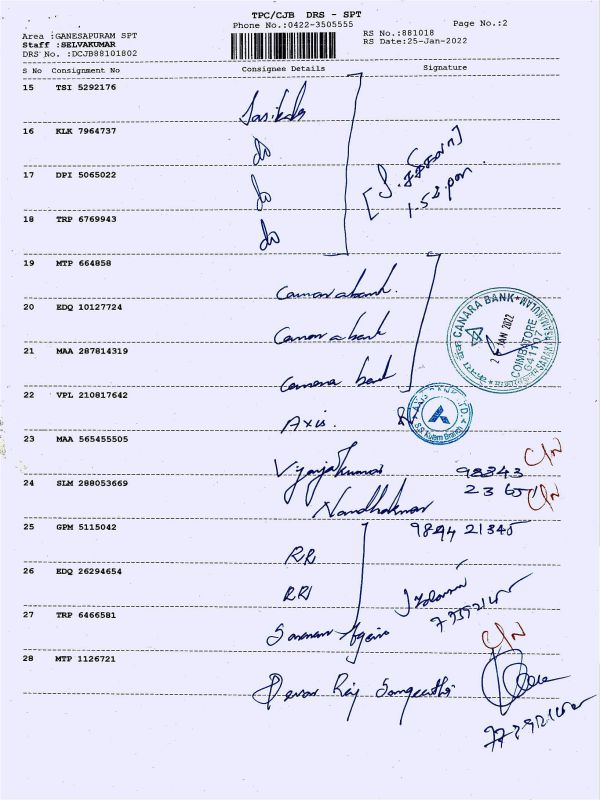 TPC/CJB DRS - SPT
Phone No.:0422-3505555
Page No.:2
Area :GANESAPURAM SPT
RS No.:881018
Staff :SELVAKUMAR
RS Date:25-Jan-2022
DRS No. :DCJB88101802
S No Consignment No Consignee Details Signature
15 TSI 5292176
Sasikala
16 KLK 7964737
do
17 DPI 5065022
do
1.53 pm
18 TRP 6769943
do
19 MTP 664858
Canara bank.
20 EDQ 10127724
Canara bank
CANARA BANK
JAN 2022
COIMBATORE
641107
21 MAA 287814319
Canara bank
22 VPL 210817642
Axis.
AXIS BANK LTD
S.S.Kulam Branch
23 MAA 565455505
Vijayakumar 98343
C/N
24 SLM 288053669
23651
C/N
Nandhakumar
25 GPM 5115042
9894 21345
RR
26 EDQ 26294654
RR
27 TRP 6466581
Saravana
C/N
28 MTP 1126721
Devar Raj Sangeetha